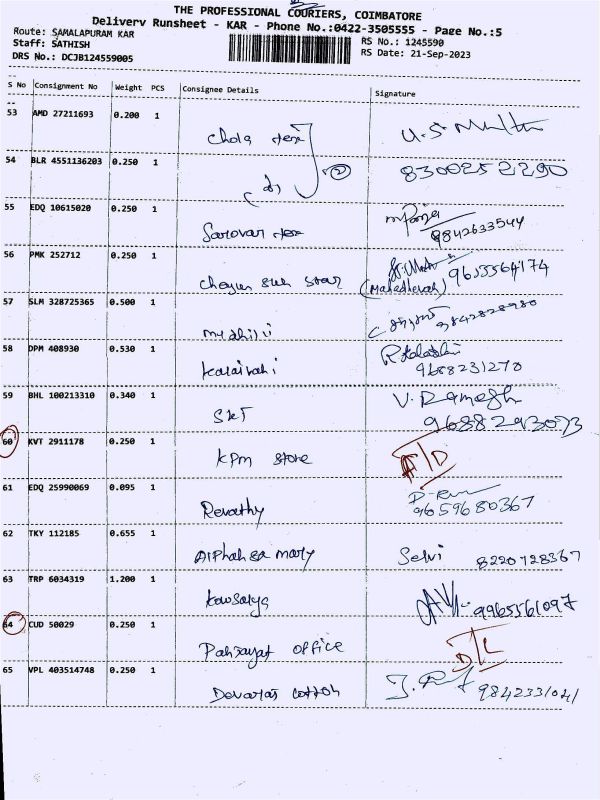 THE PROFESSIONAL COURIERS, COIMBATORE
Delivery Runsheet - KAR - Phone No.:0422-3505555 - Page No.:5
Route: SAMALAPURAM KAR
Staff: SATHISH
DRS No.: DCJB124559005
RS No.: 1245590
RS Date: 21-Sep-2023
S No Consignment No Weight PCS Consignee Details Signature
53 AMD 27211693 0.200 1 Chola tex
54 BLR 4551136203 0.250 1 8300252290
55 EDQ 10615020 0.250 1 Sarovar tex 9842633544
56 PMK 252712 0.250 1 star (Mahadevan) 9655564174
57 SLM 328725365 0.500 1 mydhili 9842828980
58 DPM 408930 0.530 1 Kalaivani 9688231270
59 BHL 100213310 0.340 1 SKT V. Ramesh 9688293073
60 KVT 2911178 0.250 1 KPM store A/D
61 EDQ 25990069 0.095 1 Revathy 9659680367
62 TKY 112185 0.655 1 Alphahsa mary Selvi 8220728367
63 TRP 6034319 1.200 1 Kowsalya 9965561097
64 CUD 50029 0.250 1 office D/L
65 VPL 403514748 0.250 1 cotton 9842331041